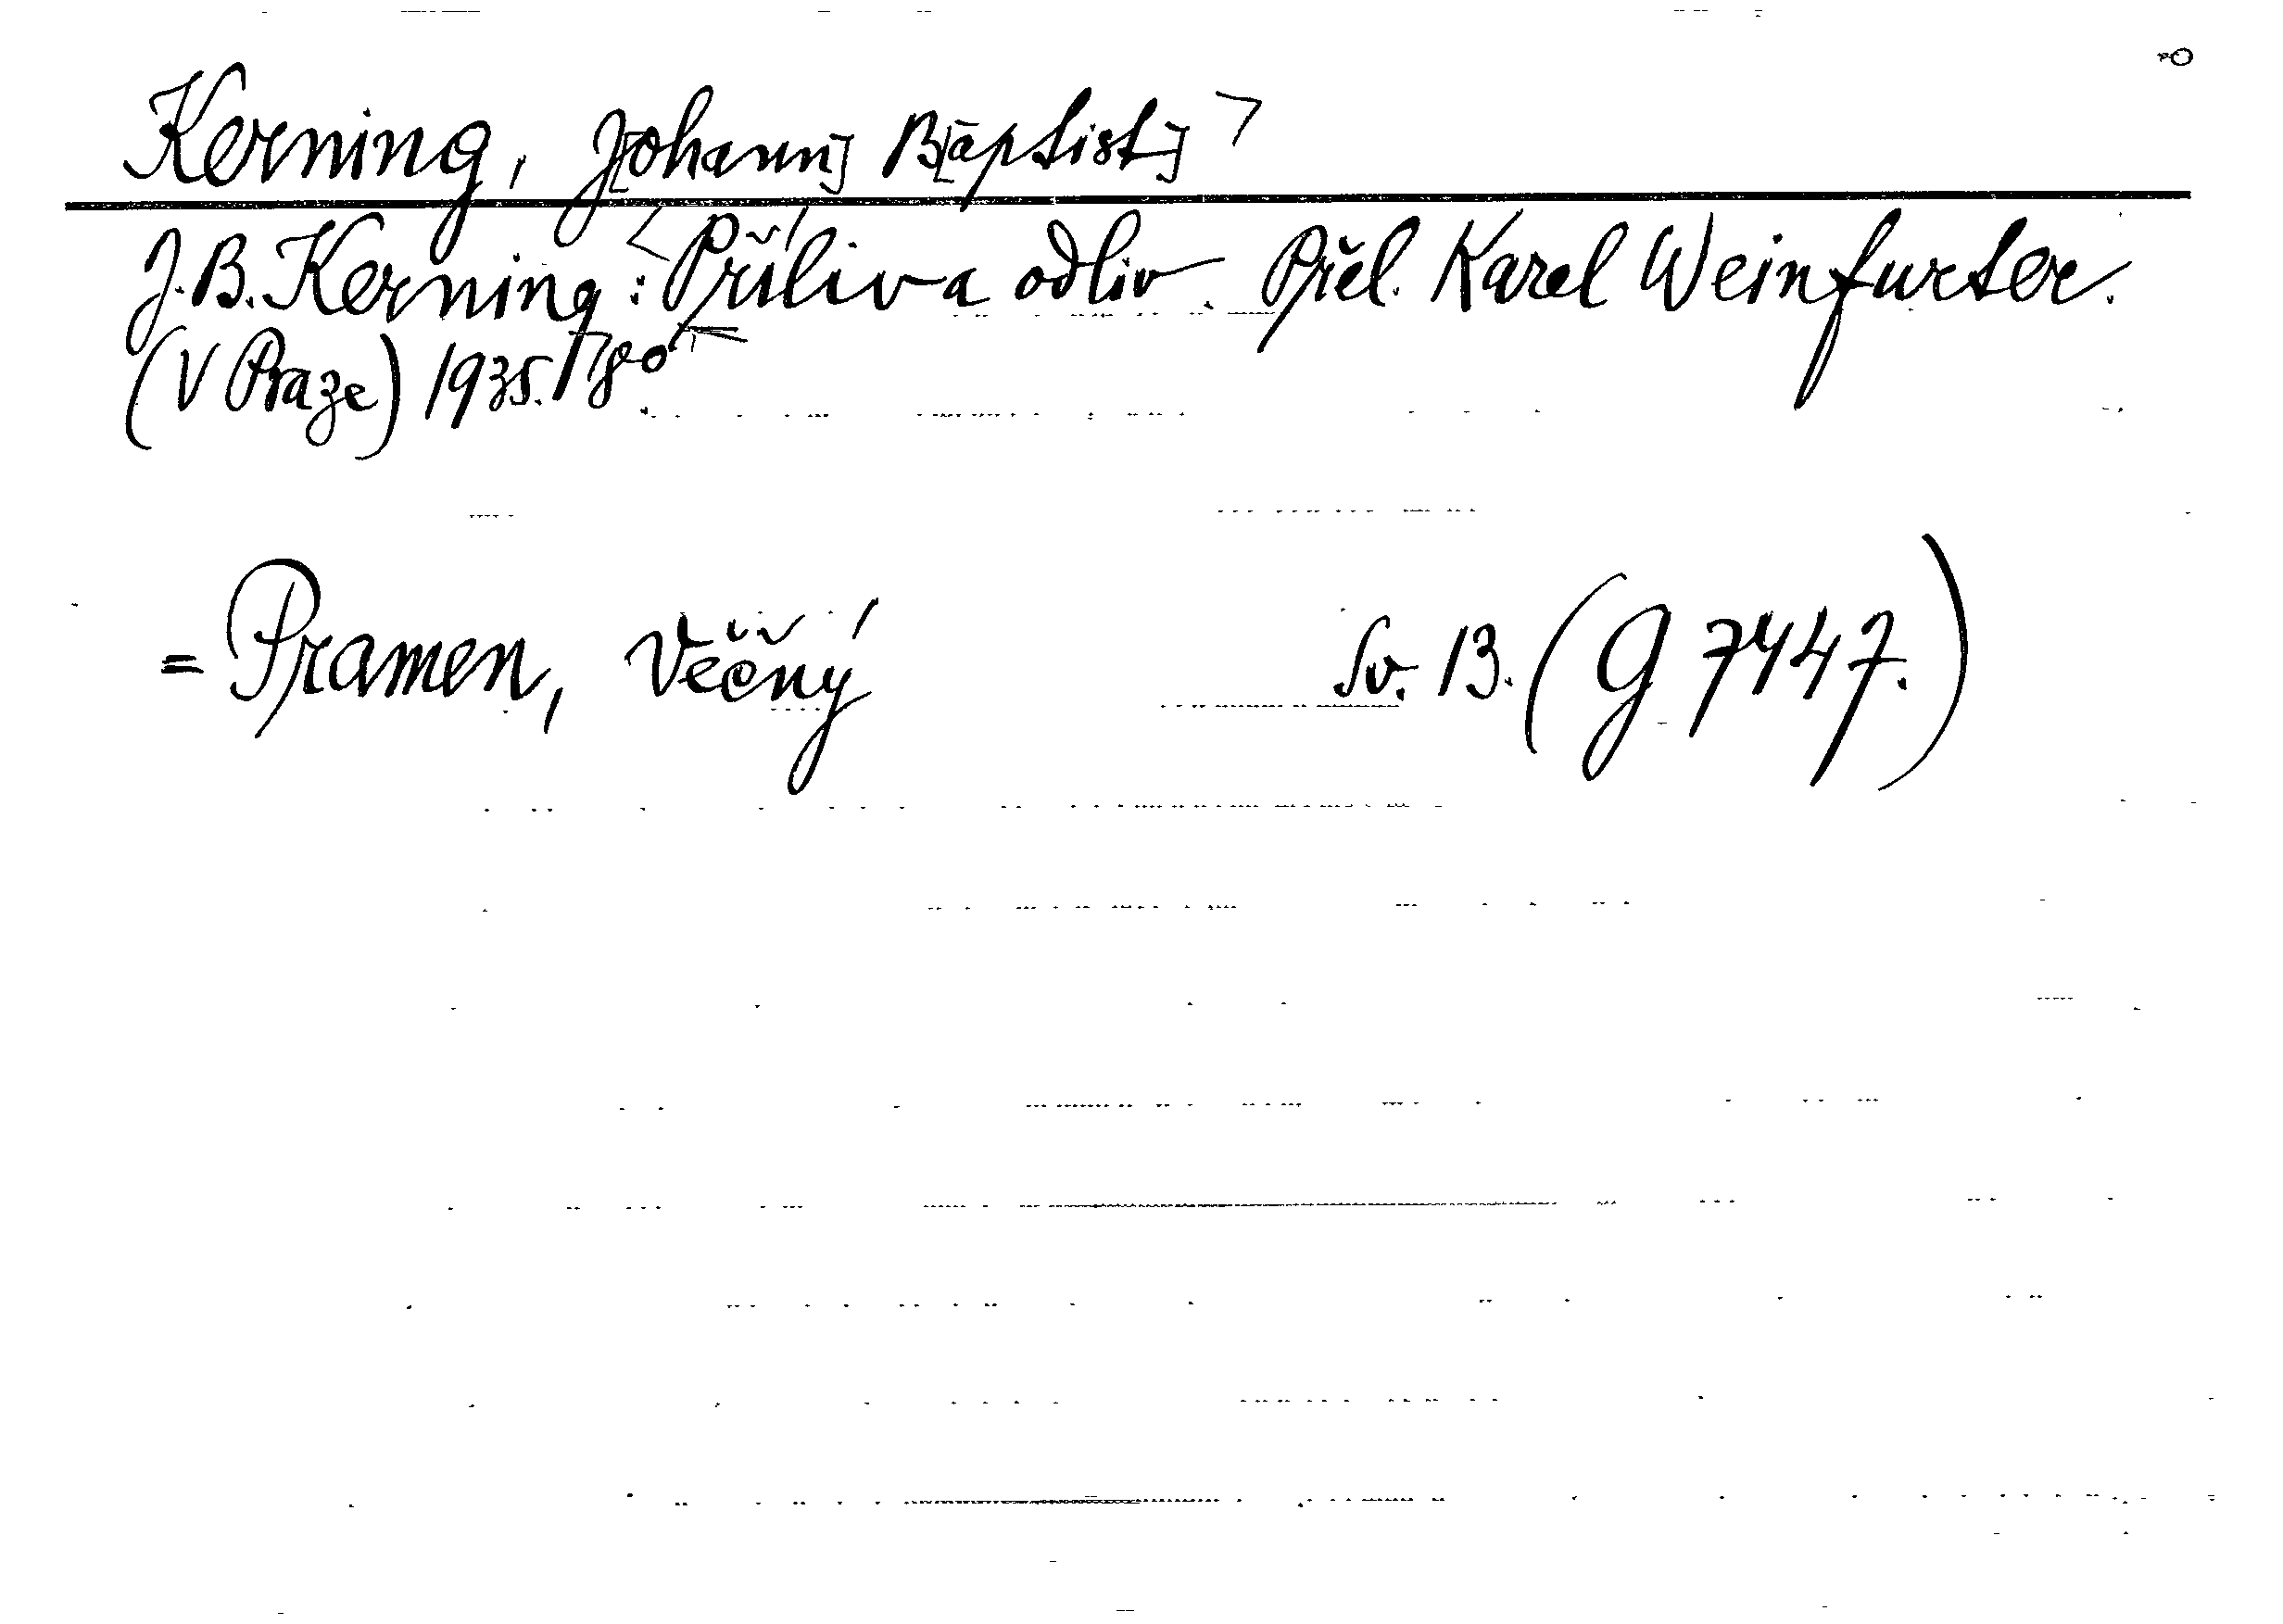 Kerning, J[ohann] B[aptist]
J. B. Kerning: Příliv a odliv. Přel. Karel Weinfurter.
(V Praze) 1935. 8°
= Pramen, Věčný Sv. 13. (G 7447.)